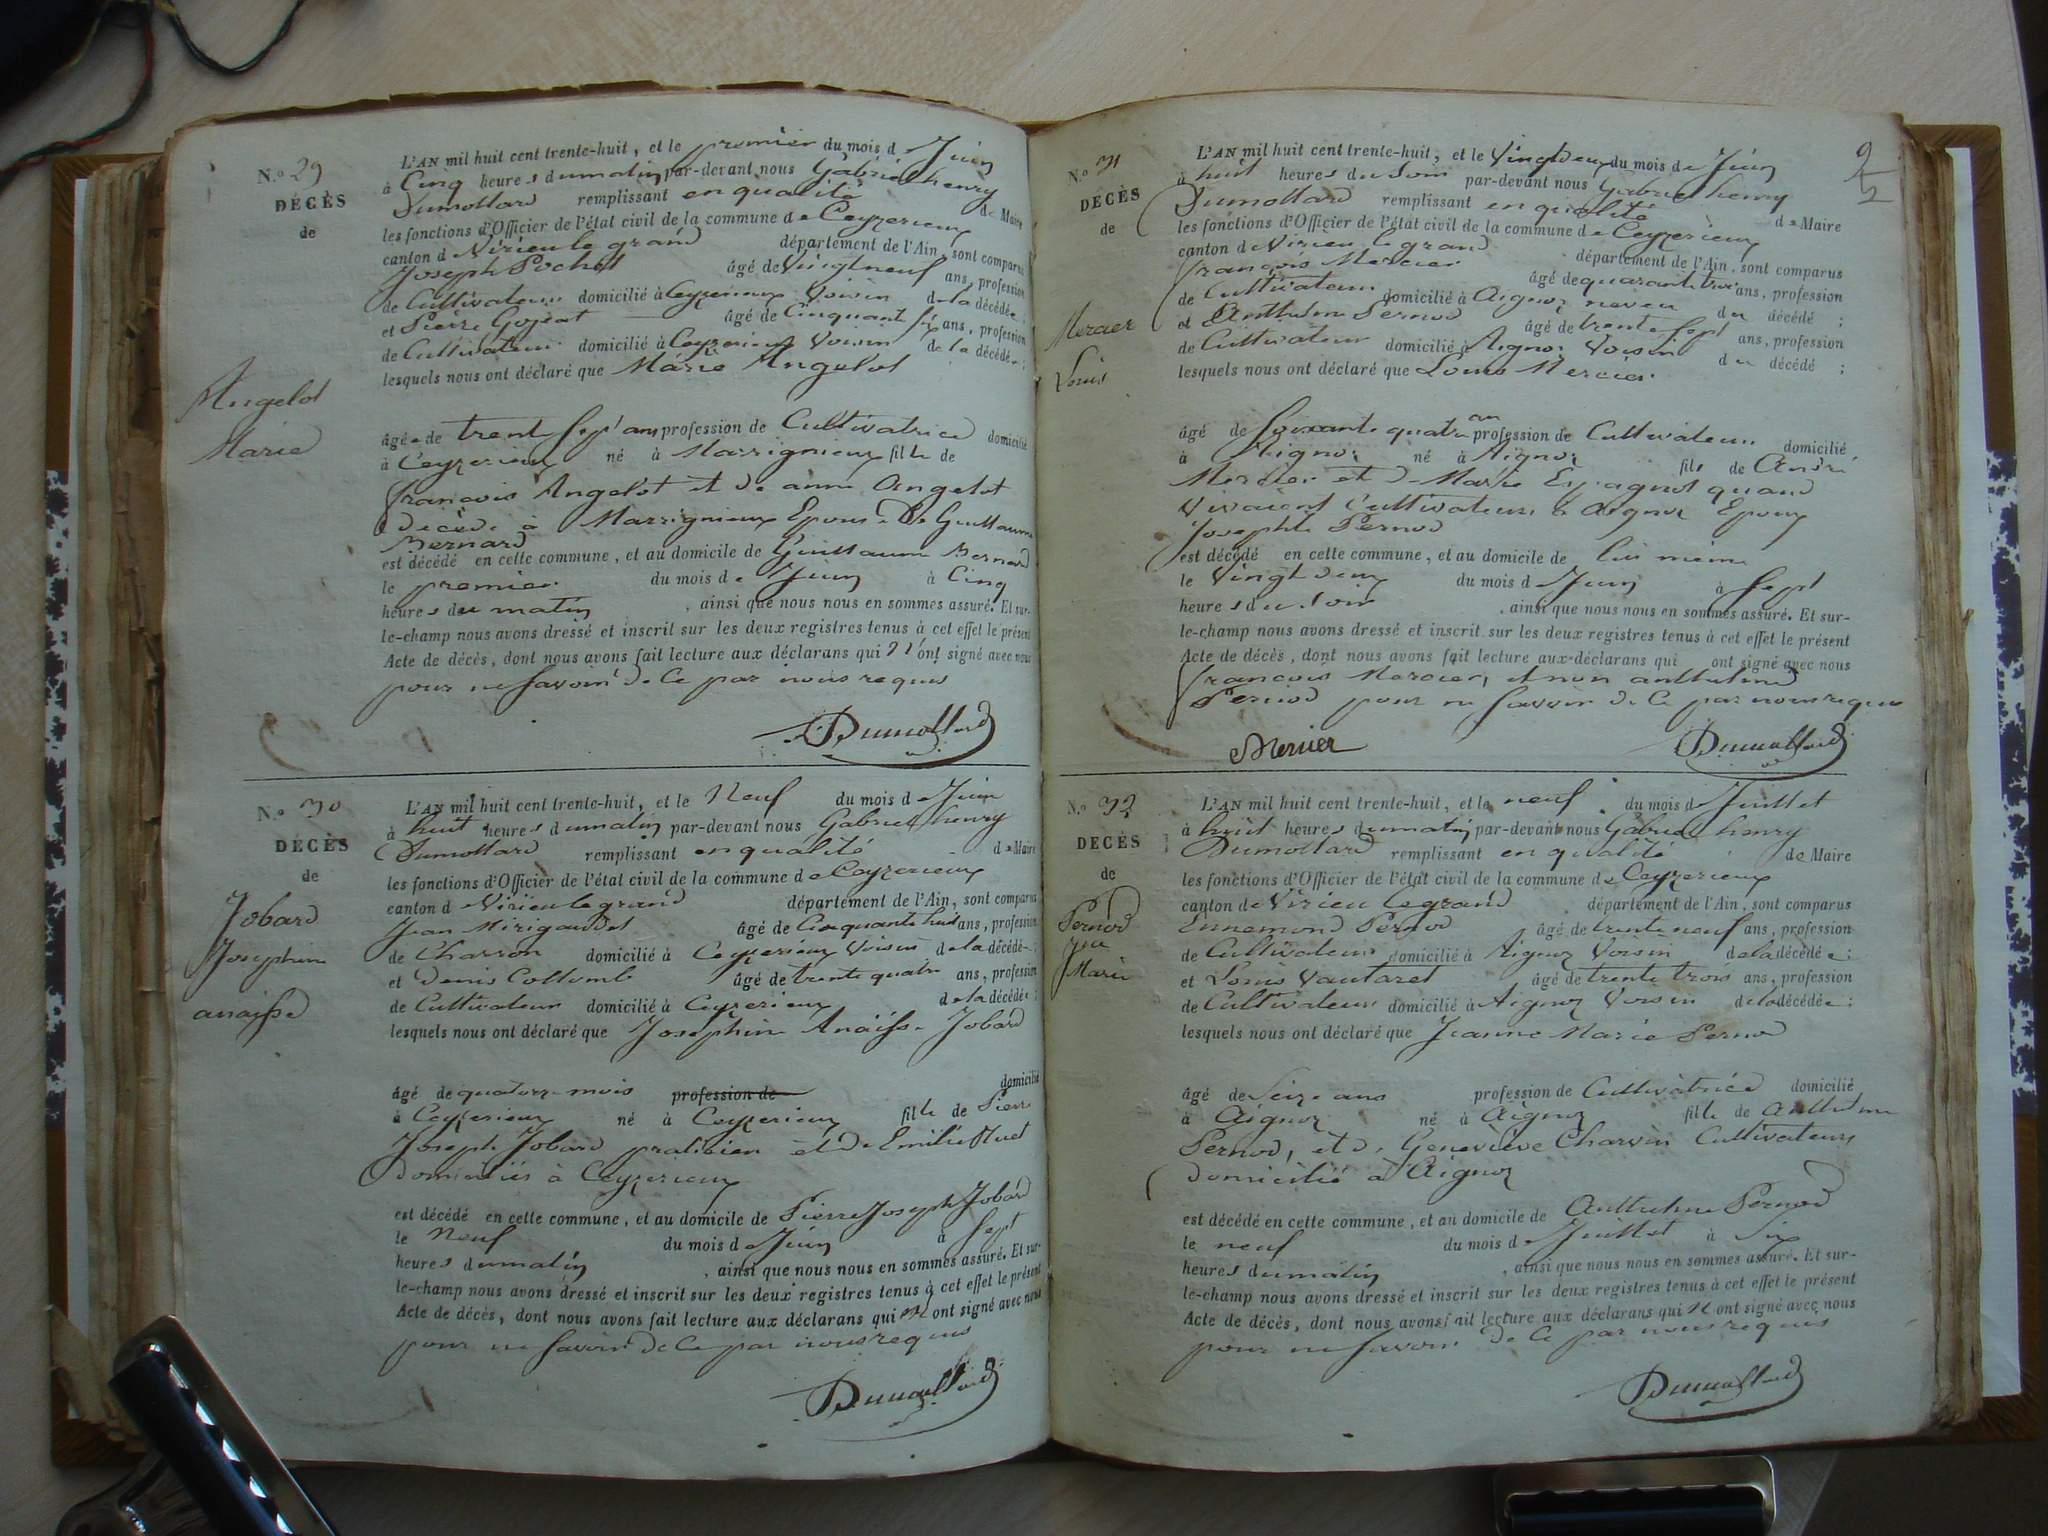 N.o 29
DÉCÈS
de
Angelot
Marie
L'AN mil huit cent trente-huit, et le premier du mois de Juin
à Cinq heures du matin par-devant nous Gabriel henry
Dumollard remplissant en qualité de Maire
les fonctions d'Officier de l'état civil de la commune de Ceyzerieux
canton de Virieu le grand département de l'Ain, sont comparus
Joseph Pochet âgé de Vingt neuf ans, profession
de Cultivateur domicilié à Ceyzerieux Voisin de la décédée
et Pierre Gojeat âgé de Cinquante six ans, profession
de Cultivateur domicilié à Ceyzerieux Voisin de la décédée ;
lesquels nous ont déclaré que Marie Angelot
âgée de trente sept ans profession de Cultivatrice domicilié
à Ceyzerieux né à Marrignieux fille de
françois Angelot et de anne Angelot
décédé à Marrignieux Epouse de Guillaume
Bernard
est décédé en cette commune, et au domicile de Guillaume Bernard
le premier du mois de Juin à Cinq
heures du matin , ainsi que nous nous en sommes assuré. Et sur-
le-champ nous avons dressé et inscrit sur les deux registres tenus à cet effet le présent
Acte de décès, dont nous avons fait lecture aux déclarans qui n'ont signé avec nous
pour ne savoir de Ce par nous requis
Dumollard
N.o 30
DÉCÈS
de
Jobard
Josephine
anaisse
L'AN mil huit cent trente-huit, et le Neuf du mois de Juin
à huit heures du matin par-devant nous Gabriel henry
Dumollard remplissant en qualité de Maire
les fonctions d'Officier de l'état civil de la commune de Ceyzerieux
canton de Virieu le grand département de l'Ain, sont comparus
Jean Mirigaudet âgé de Cinquante huit ans, profession
de Charron domicilié à Ceyzerieux Voisin de la décédée ;
et Denis Collomb âgé de trente quatre ans, profession
de Cultivateur domicilié à Ceyzerieux de la décédée ;
lesquels nous ont déclaré que Josephine Anaisse Jobard
âgé de quatorze mois profession de domicilié
à Ceyzerieux né à Ceyzerieux fille de Pierre
Joseph Jobard praticien et de Emilie
Domiciliés à Ceyzerieux
est décédé en cette commune, et au domicile de Pierre Joseph Jobard
le Neuf du mois de Juin à Sept
heures du matin , ainsi que nous nous en sommes assuré. Et sur-
le-champ nous avons dressé et inscrit sur les deux registres tenus à cet effet le présent
Acte de décès, dont nous avons fait lecture aux déclarans qui n'ont signé avec nous
pour ne savoir de Ce par nous requis
Dumollard
N.o 31
DÉCÈS
de
Mercier
Louis
L'AN mil huit cent trente-huit, et le Vingt Deux du mois de Juin
à huit heures du Soir par-devant nous Gabriel henry
Dumollard remplissant en qualité de Maire
les fonctions d'Officier de l'état civil de la commune de Ceyzerieux
canton de Virieu le grand département de l'Ain, sont comparus
françois Mercier âgé de quarante trois ans, profession
de Cultivateur domicilié à Aignoz neveu du décédé ;
et Anthelme Pernod âgé de trente Sept ans, profession
de Cultivateur domicilié à Aignoz Voisin du décédé ;
lesquels nous ont déclaré que Louis Mercier
âgé de Soixante quatre ans profession de Cultivateur domicilié
à Aignoz né à Aignoz fils de André
Mercier et de Marie Espagnol quand
Vivaient Cultivateurs à Aignoz Epoux
Josephte Pernod
est décédé en cette commune, et au domicile de lui meme
le Vingt Deux du mois de Juin à Sept
heures du Soir , ainsi que nous nous en sommes assuré. Et sur-
le-champ nous avons dressé et inscrit sur les deux registres tenus à cet effet le présent
Acte de décès, dont nous avons fait lecture aux déclarans qui ont signé avec nous
francois Mercier, et non anthelme
Pernod pour ne Savoir de Ce par nous requis
Mercier Dumollard
N.o 32
DÉCÈS
de
Pernod
Jne
Marie
L'AN mil huit cent trente-huit, et le neuf du mois de Juillet
à huit heures du matin par-devant nous Gabriel henry
Dumollard remplissant en qualité de Maire
les fonctions d'Officier de l'état civil de la commune de Ceyzerieux
canton de Virieu le grand département de l'Ain, sont comparus
Ennemond Pernod âgé de trente neuf ans, profession
de Cultivateur domicilié à Aignoz Voisin de la décédée ;
et Louis Vautaret âgé de trente trois ans, profession
de Cultivateur domicilié à Aignoz Voisin de la décédée ;
lesquels nous ont déclaré que Jeanne Marie Pernod
âgé de Seize ans profession de Cultivatrice domicilié
à Aignoz né à Aignoz fille de Anthelme
Pernod, et de Geneviève Charvin Cultivateurs
domicilié à Aignoz
est décédé en cette commune, et au domicile de Anthelme Pernod
le neuf du mois de Juillet à Six
heures du matin , ainsi que nous nous en sommes assuré. Et sur-
le-champ nous avons dressé et inscrit sur les deux registres tenus à cet effet le présent
Acte de décès, dont nous avons fait lecture aux déclarans qui n'ont signé avec nous
pour ne savoir de Ce par nous requis
Dumollard